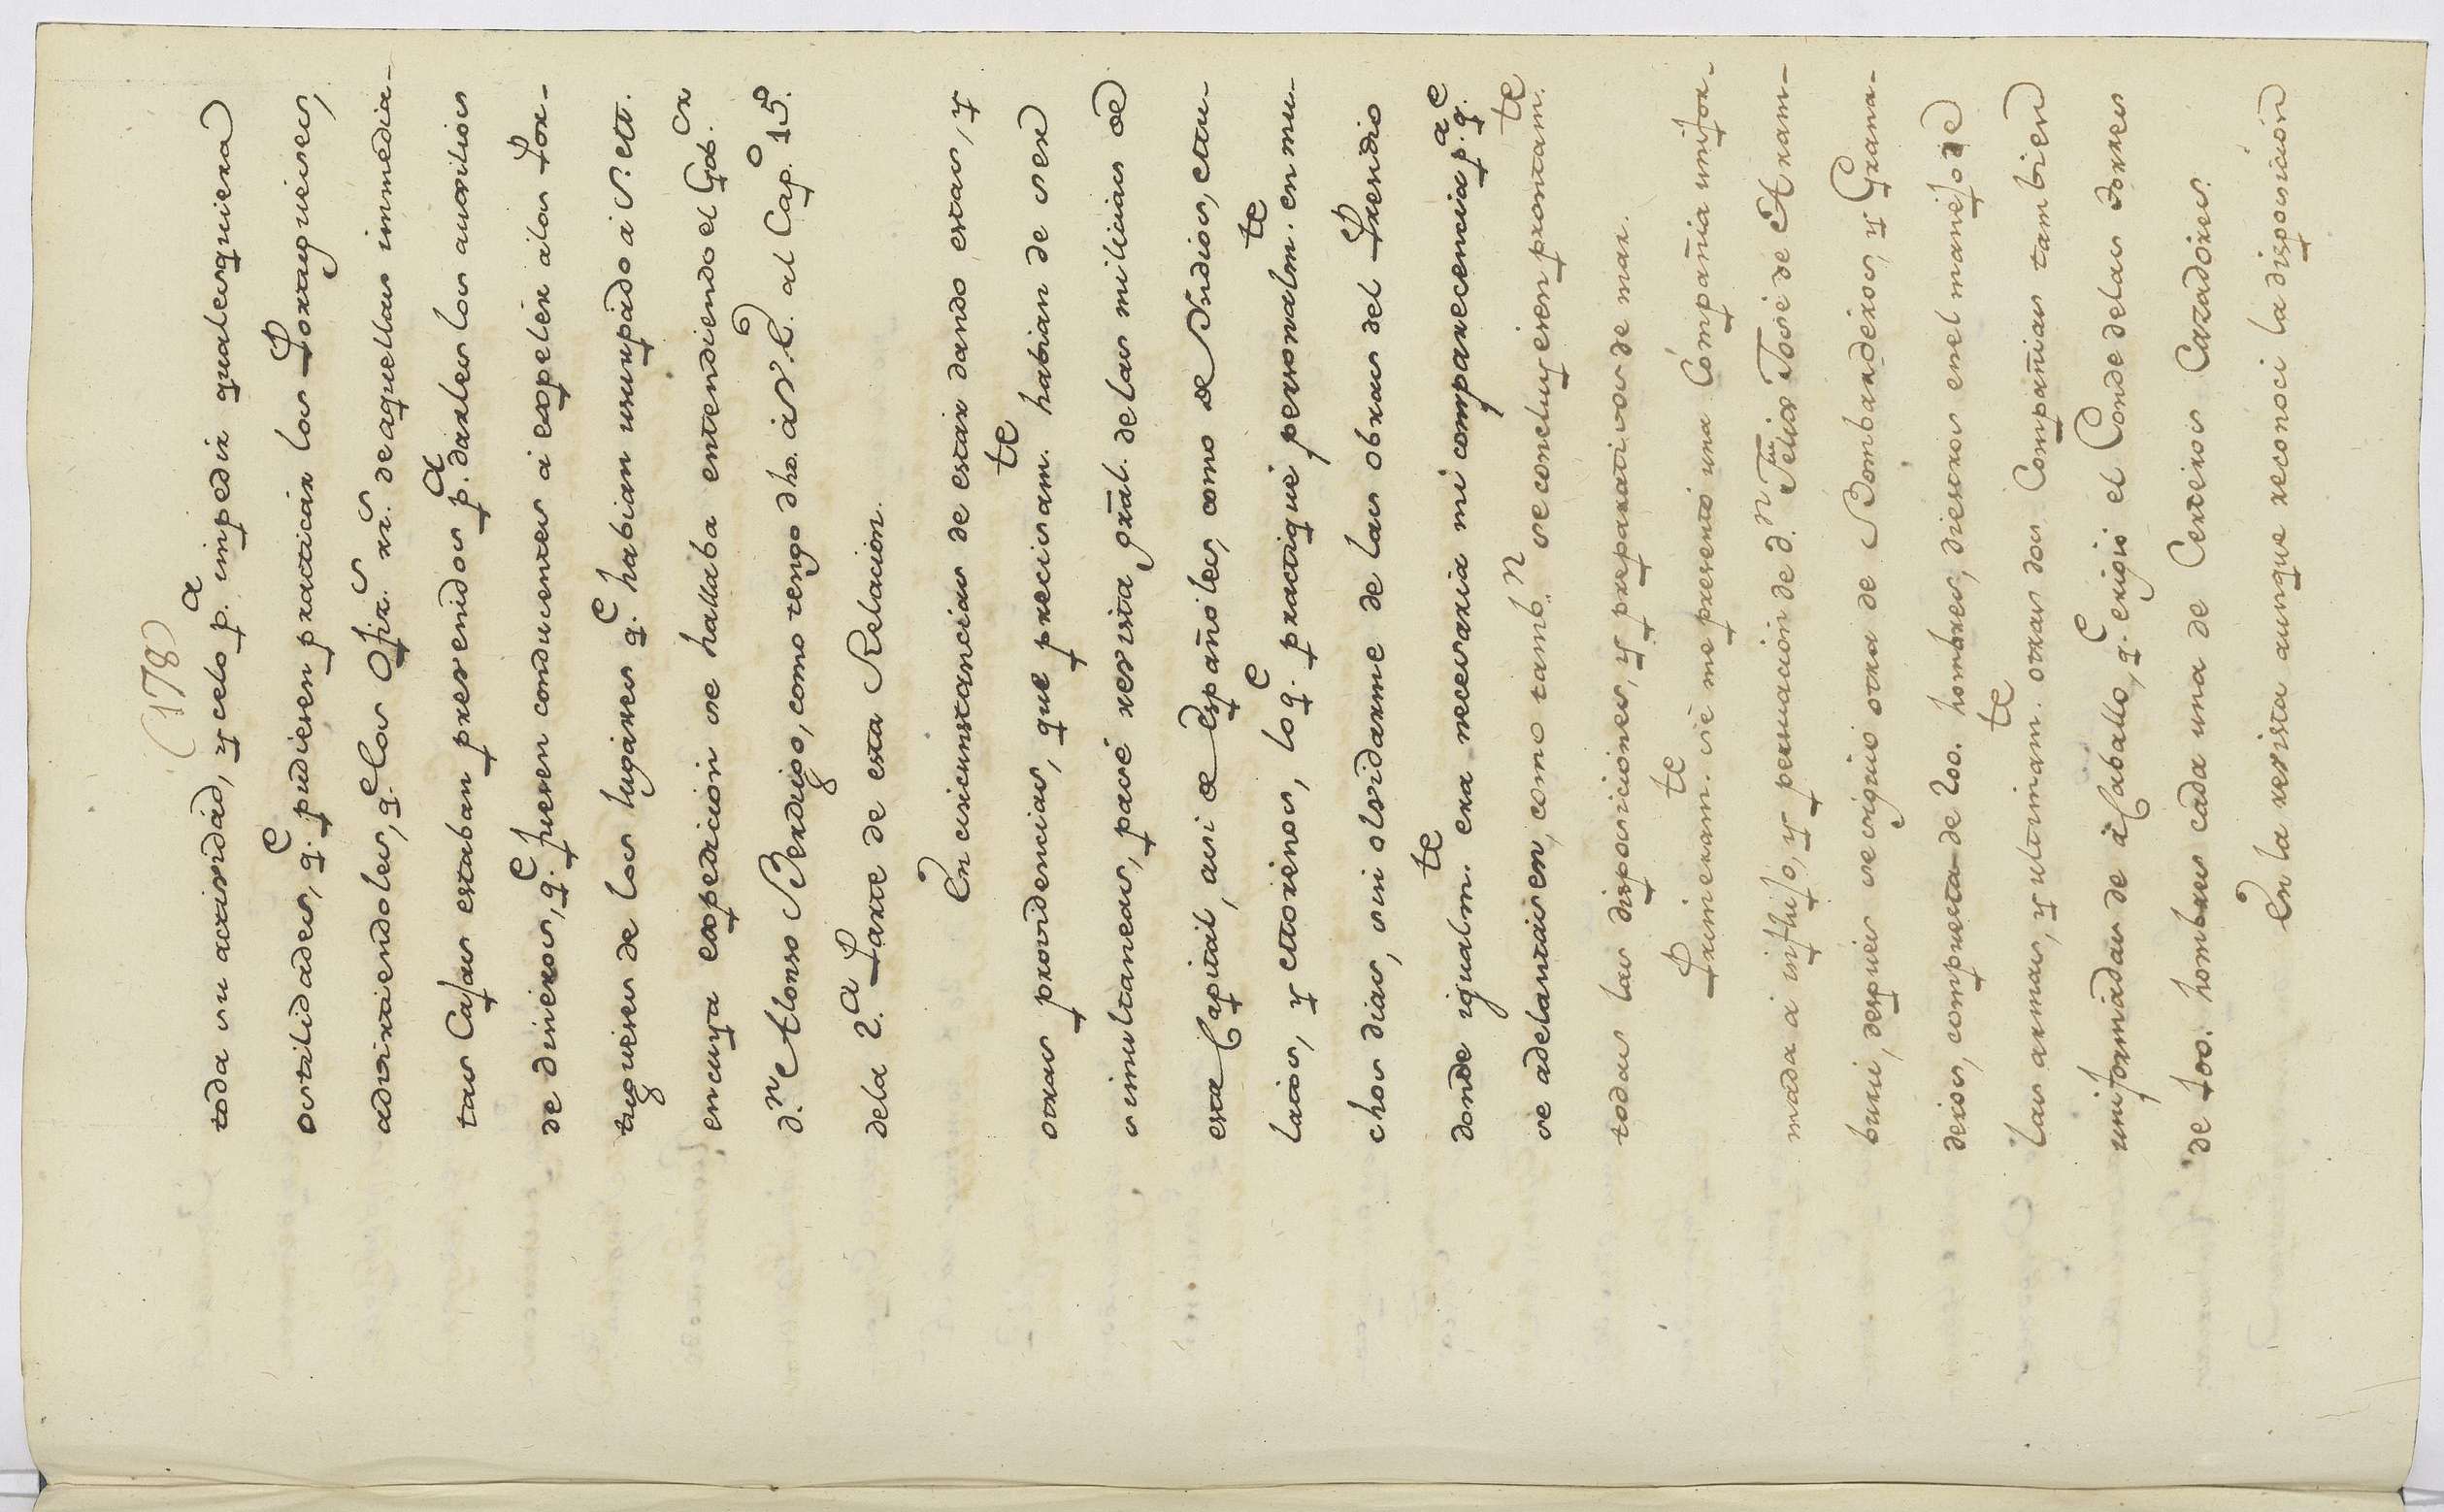 (178)
toda su actividád, y celo p.ª impedir qualesquiera
ostilidades, q.e pudiesen practicar los Portugueses,
advirtiendoles, q.e los Ofiz.s rr.s de aquellas inmedia-
tas Cajas estaban prevenidos p.ª darles los auxilios
de dineros, q.e fuesen conducentes á expelér á los Por-
tugueses de los lugáres q.e habian usurpádo á S. M.
en cuya expedición se hallaba entendiendo el Gob.or
d.n Alonso Berdugo, como tengo dho. á V. E. al Cap.o 15.
de la 2.ª Parte de esta Relación.
En circunstancias de estár dando estas, y
otras providencias, que precisam.te habian de ser
simultaneas, pasé revista grāl. de las milicias de
esta Capitál, asi de Españoles, como de Yndios, Mu-
latos, y Morenos, lo q.e practiqué personalm.te en mu-
chos dias, sin olvidarme de las obras del Presidio
donde igualm.te era necesaria mi comparecencia p.ª q.e
se adelantásen, como tamb.n se concluyesen prontam.te
todas las disposiciones, y preparativos de mar.
Primeram.te sé me presentó una Compañia unifor-
mada á influjo, y persuación de d.n Felix José de Aram-
buru, después se siguió otra de Bombardéros, y Grana-
deros, compuesta de 200. hombres, diestros en el manejo de
las armas, y ultimam.te otras dos Compañias tambien
uniformádas de á Caballo, q.e erigió el Conde de las Torres
de 100. hombres cada una de Certeros Cazadores.
En la revista aunque reconoci la disposición